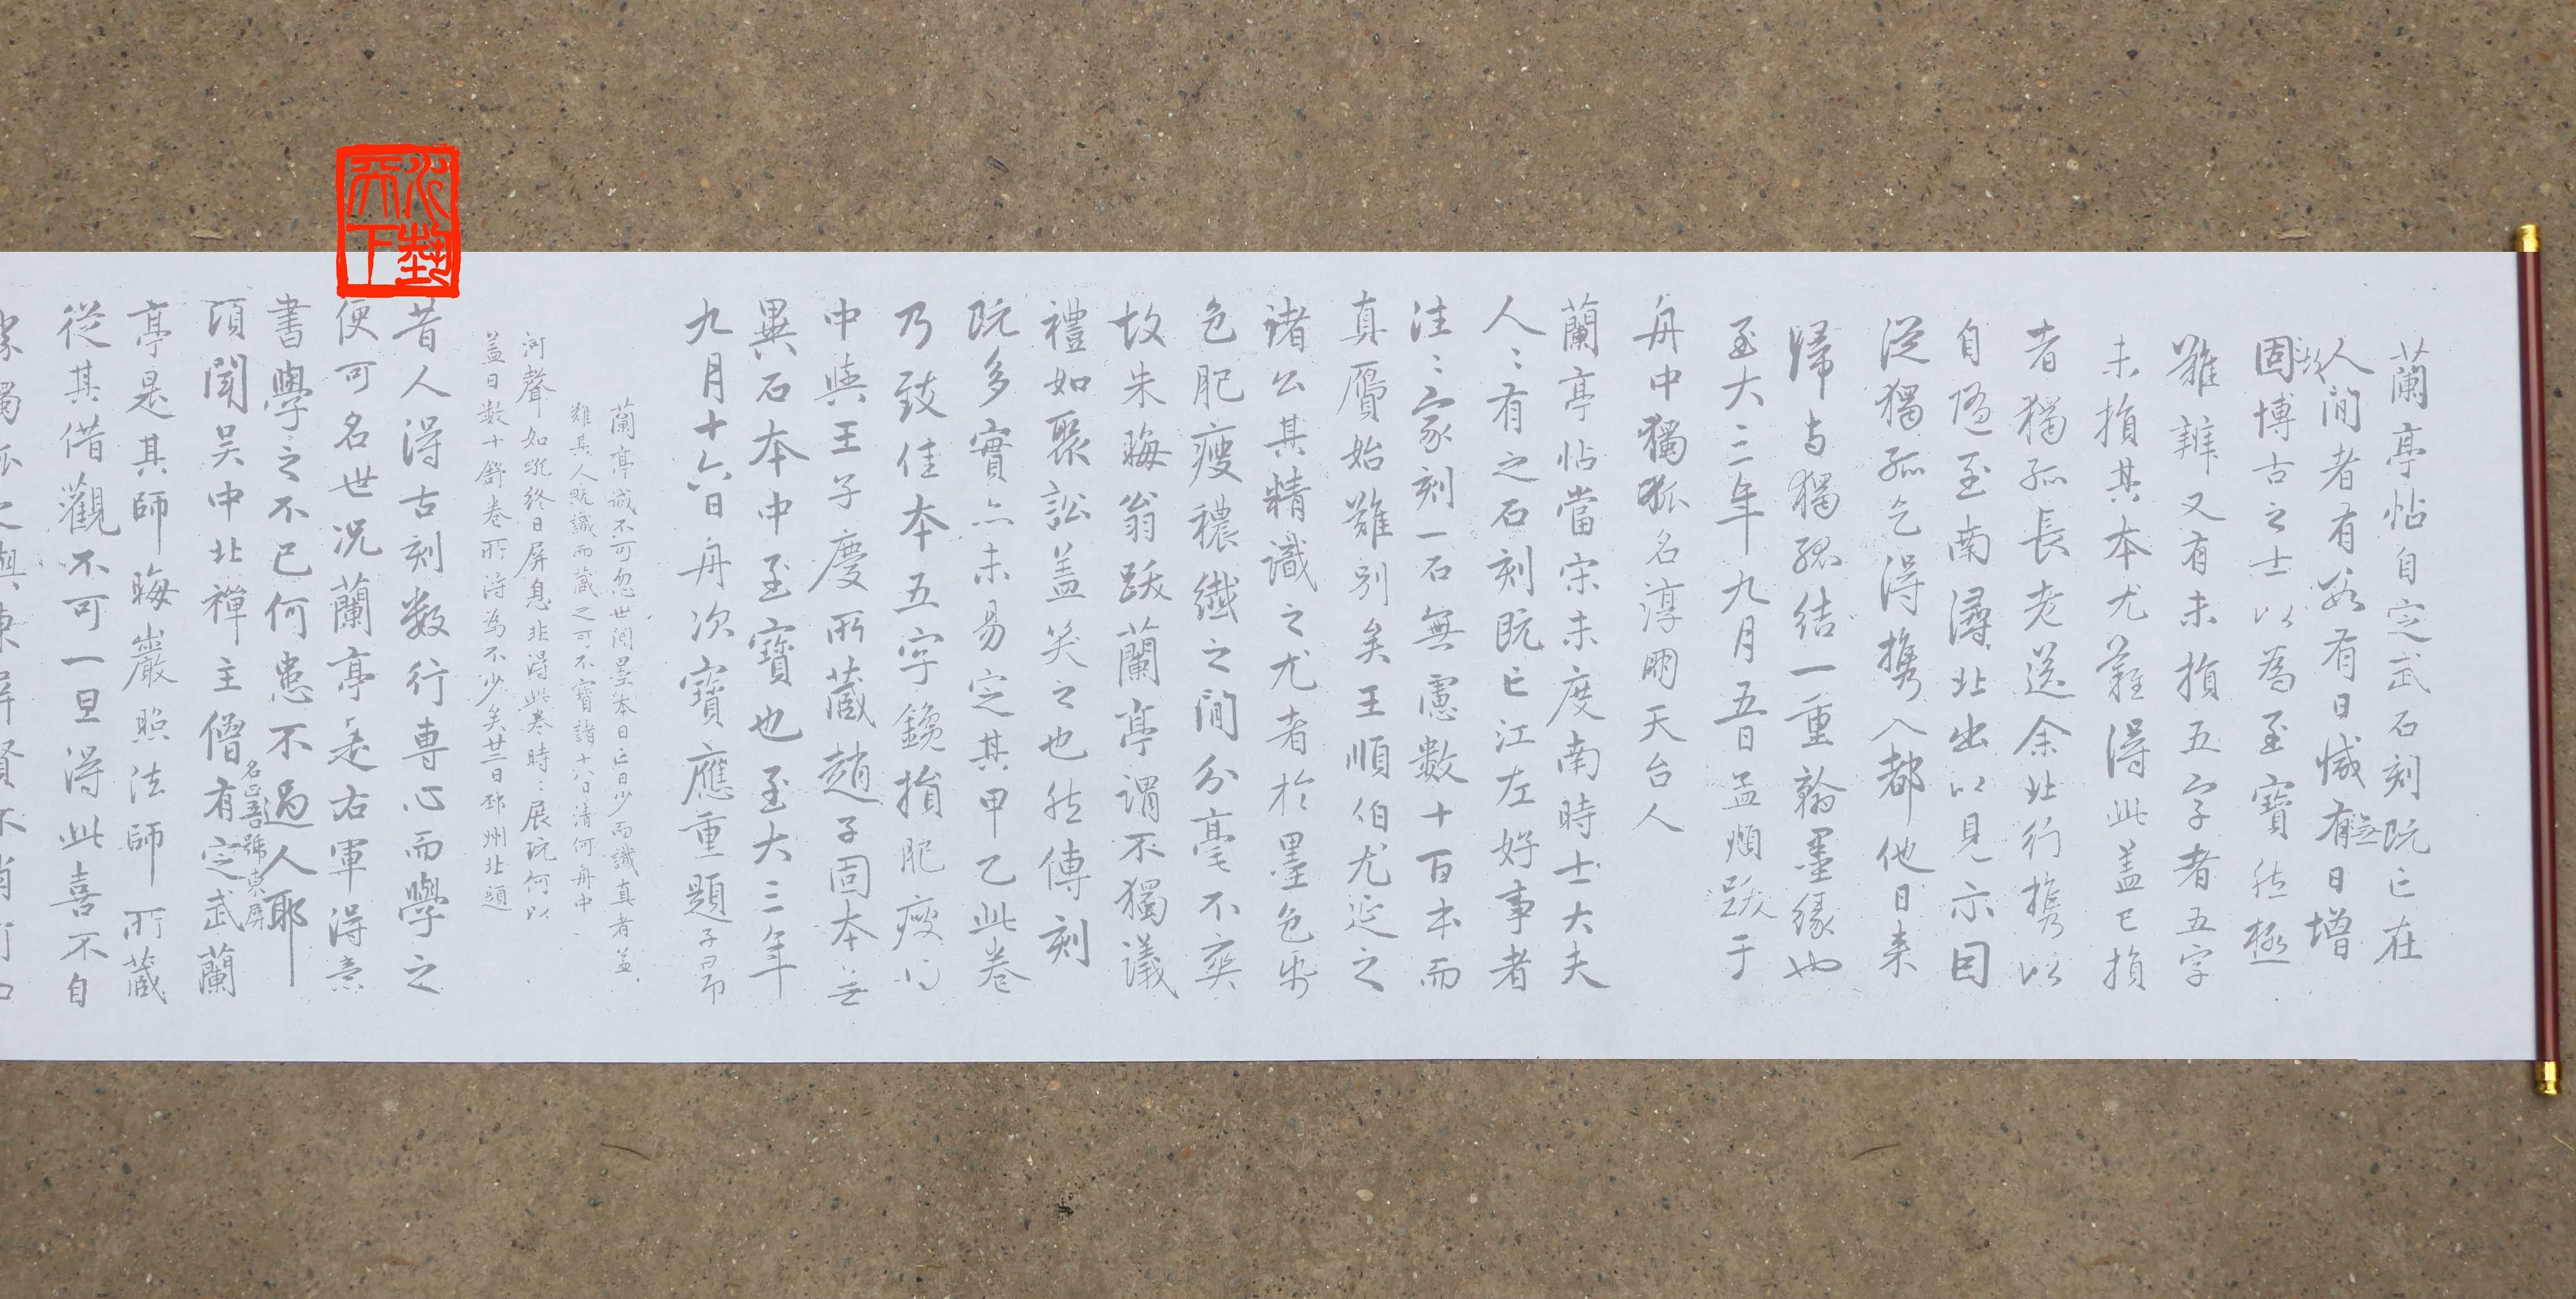 蘭亭帖自定武石刻既亡在
人間者有數有日減有日增
無
故
固博古之士以為至寶然極
難辨又有未損五字者五字
未損其本尤難得此蓋已損
者獨孤長老送余北行攜以
自隨至南潯北出以見示因
從獨孤乞得攜入都他日來
歸与獨孤結一重翰墨緣也
至大三年九月五日孟頫跋于
舟中獨孤名淳朋天台人
蘭亭帖當宋未度南時士大夫
人〻有之石刻既亡江左好事者
往〻家刻一石無慮數十百本而
真贗始難別矣王順伯尤延之
諸公其精識之尤者於墨色帋
色肥瘦穠纖之間分毫不爽
故朱晦翁跋蘭亭謂不獨議
禮如聚訟蓋笑之也然傳刻
既多實亦未易定其甲乙此卷
乃致佳本五字鑱損肥瘦得
中與王子慶所藏趙子固本無
異石本中至寶也至大三年
九月十六日舟次寶應重題子昂
蘭亭誠不可忽世間墨本日亡日少而識真者蓋
難其人既識而藏之可不寶諸十八日清河舟中
河聲如吼終日屏息非得此卷時〻展玩何以
蓋日數十舒卷所得為不少矣廿二日邳州北題
昔人得古刻數行專心而學之
便可名世況蘭亭是右軍得意
書學之不已何患不過人耶
頃聞吳中北禪主僧有定武蘭
名正吾號東屏
亭是其師晦巖照法師所藏
從其借觀不可一旦得此喜不自
勝獨孤之與東屏賢不肖何如
水藝
天下